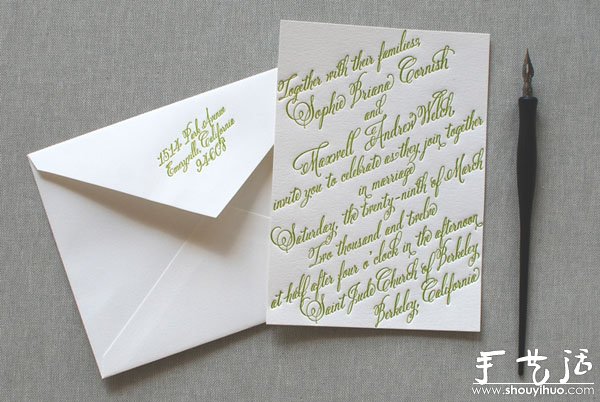 Together with their families,
Sophie Briana Cornish
and
Maxwell Andrew Welch
invite you to celebrate as they join together
in marriage
Saturday, the twenty-ninth of March
Two thousand and twelve
at half after four o'clock in the afternoon
Saint Jude Church of Berkeley
Berkeley, California
1544 Park Avenue
Emeryville, California
94608
手艺活
www.shouyihuo.com